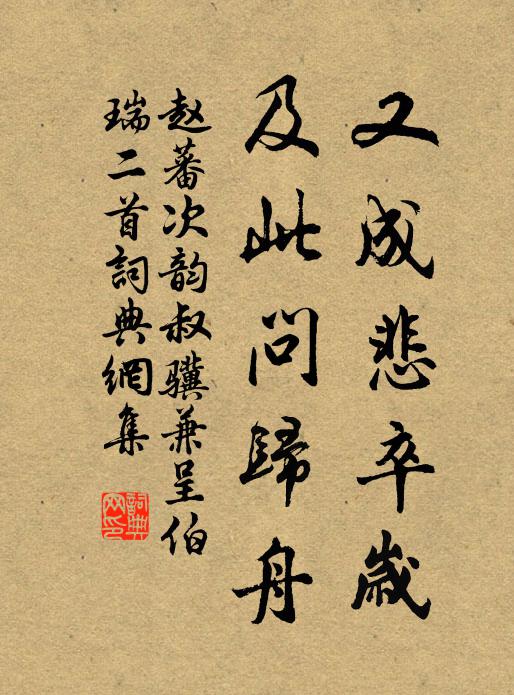 又成悲卒歲
及此問歸舟
赵蕃次韵叔骥兼呈伯
瑞二首詞典網集
詞典网印